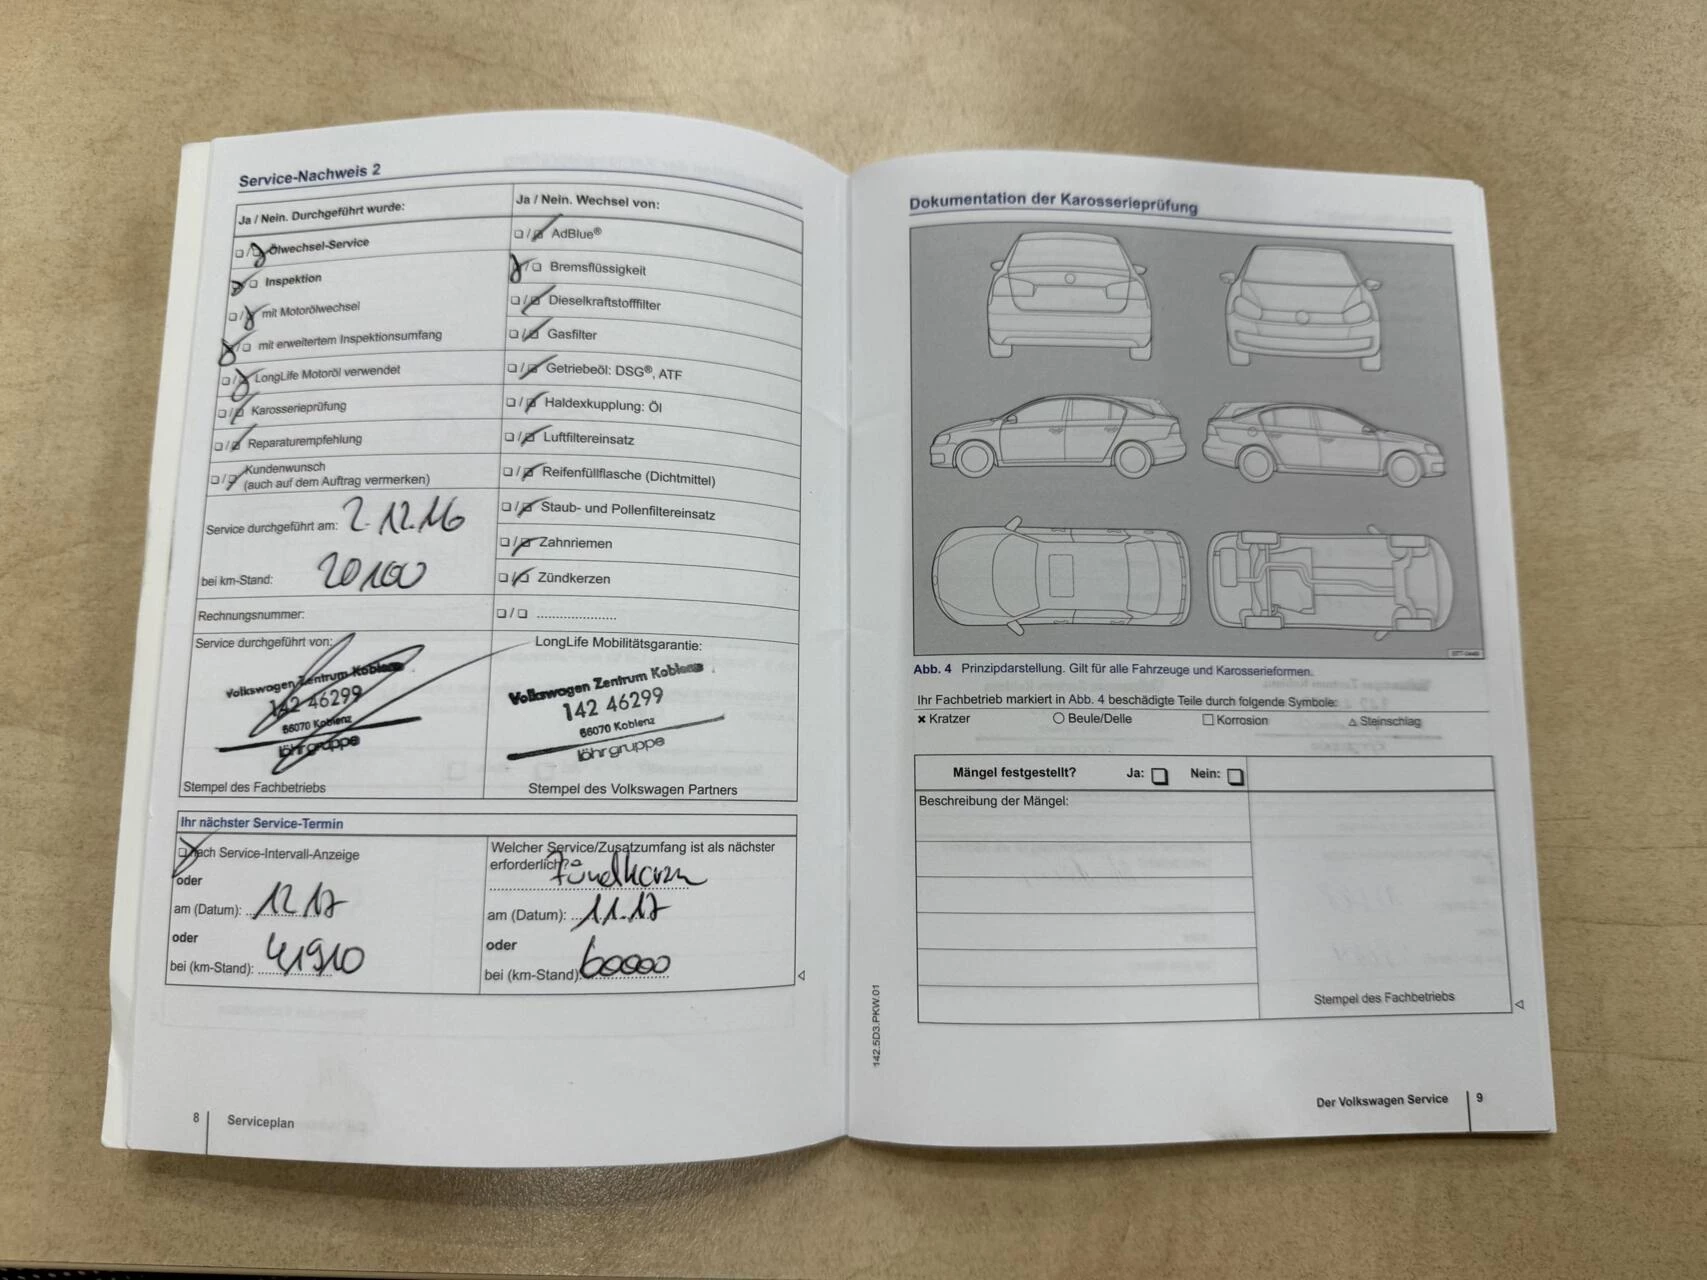 Service-Nachweis 2
Ja / Nein. Durchgeführt wurde:
Ölwechsel-Service
Inspektion
mit Motorölwechsel
mit erweitertem Inspektionsumfang
LongLife Motoröl verwendet
Karosserieprüfung
Reparaturempfehlung
Kundenwunsch
(auch auf dem Auftrag vermerken)
Service durchgeführt am: 2.12.16
bei km-Stand: 20100
Rechnungsnummer:
Ja / Nein. Wechsel von:
AdBlue®
Bremsflüssigkeit
Dieselkraftstofffilter
Gasfilter
Getriebeöl: DSG®, ATF
Haldexkupplung: Öl
Luftfiltereinsatz
Reifenfüllflasche (Dichtmittel)
Staub- und Pollenfiltereinsatz
Zahnriemen
Zündkerzen
Service durchgeführt von:
Volkswagen Zentrum Koblenz
142 46299
56070 Koblenz
löhrgruppe
Stempel des Fachbetriebs
LongLife Mobilitätsgarantie:
Volkswagen Zentrum Koblenz
142 46299
56070 Koblenz
löhrgruppe
Stempel des Volkswagen Partners
Ihr nächster Service-Termin
nach Service-Intervall-Anzeige
oder
am (Datum): 12 17
oder
bei (km-Stand): 41910
Welcher Service/Zusatzumfang ist als nächster
erforderlich?
am (Datum): 11.17
oder
bei (km-Stand): 60000
8 Serviceplan
Dokumentation der Karosserieprüfung
Abb. 4 Prinzipdarstellung. Gilt für alle Fahrzeuge und Karosserieformen.
Ihr Fachbetrieb markiert in Abb. 4 beschädigte Teile durch folgende Symbole:
Kratzer Beule/Delle Korrosion Steinschlag
Mängel festgestellt? Ja: Nein:
Beschreibung der Mängel:
Stempel des Fachbetriebs
142.5D3.PKW.01
Der Volkswagen Service 9